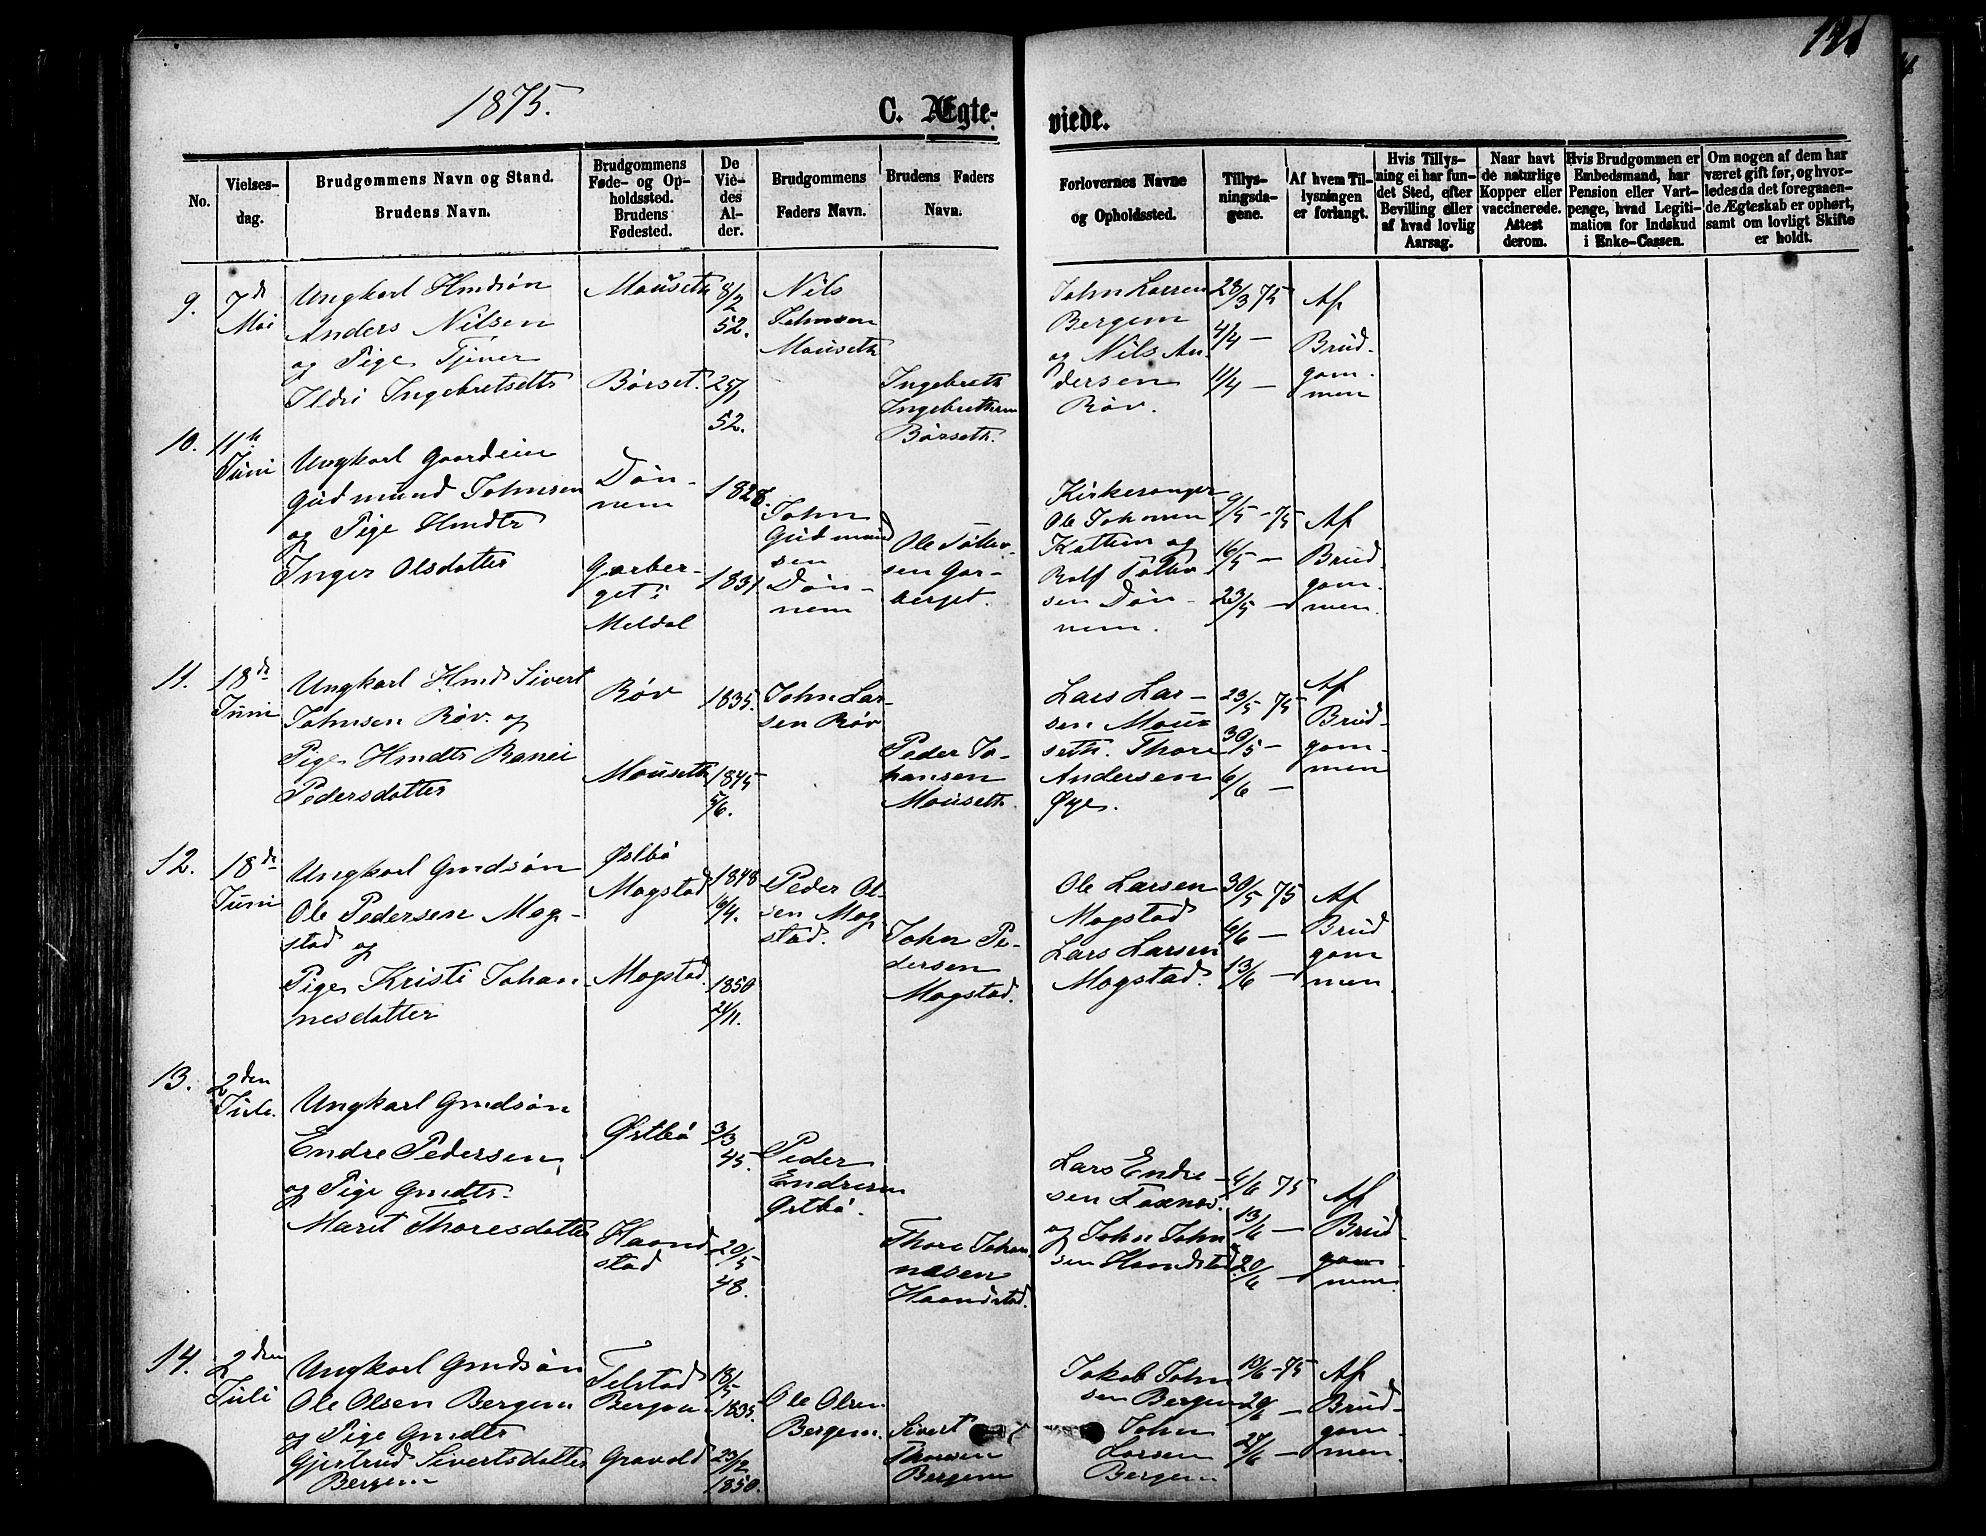 1875.
121
C. Ægte-
viede.
No.
Vielses-
dag.
Brudgommens Navn og Stand.
Brudens Navn.
Brudgommens
Føde- og Op-
holdssted.
Brudens
Fødested.
De
Vie-
des
Al-
der.
Brudgommens
Faders Navn.
Brudens Faders
Navn.
Forlovernes Navne
og Opholdssted.
Tillys-
ningsda-
gene.
Af hvem Til-
lysningen
er forlangt.
Hvis Tillys-
ning ei har fun-
det Sted, efter
Bevilling eller
af hvad lovlig
Aarsag.
Naar havt
de naturlige
Kopper eller
vaccinerede.
Attest
derom.
Hvis Brudgommen er
Embedsmand, har
Pension eller Vart-
penge, hvad Legiti-
mation for Indskud
i Enke-Cassen.
Om nogen af dem har
været gift før, og hvor-
ledes da det foregaaen-
de Ægteskab er ophørt,
samt om lovligt Skifte
er holdt.
9.
7de
Mai
Ungkarl Hmdsøn
Anders Nilsen
og Pige Tjener
Ildri Ingebretsdtr
Mouseth
Børset.
8/2
52.
25/1
52.
Nils
Johnsen
Mouseth
Ingebreth
Ingebrethsen
Børseth.
John Larsen
Bergem
og Nils An-
dersen
Røv.
28/3 75
4/4 —
11/4 —
Af
Brud-
gom-
men
10.
11te
Juni
Ungkarl Gaardeier
Gudmund Johnsen
og Pige Hmdtr
Inger Olsdatter
Døn-
nem
Garber-
get i
Meldal
1828.
1831
John
Gudmund
sen
Døn-
nem
Ole Tøllev-
sen Gar-
berget.
Kirkesanger
Ole Johnsen
Kattem og
Rolf Tøllev
sen Døn-
nem.
9/5 - 75
16/5 —
23/5 —
Af
Brud
gom-
men.
11.
18de
Juni
Ungkarl Hmd. Sivert
Johnsen Røv. og
Pige Hmdtr Ranei
Pedersdatter
Røv
Mouseth
1835.
1845
5/6.
John Lar-
sen Røv
Peder Jo-
hansen
Mouseth.
Lars Lar-
sen Mou-
seth. Thore
Andersen
Øye.
23/5 - 75
30/5 —
6/6 —
Af
Brud-
gom-
men
12.
18de
Juni
Ungkarl Gmdsøn
Ole Pedersen Mog-
stad og
Pige Kristi Johan
nesdatter
Østbø
Mogstad
Mogstad.
1848
16/4.
1850
24/11.
Peder Ol-
sen Mog-
stad.
John Pe-
dersen
Mogstad.
Ole Larsen
Mogstad
Lars Larsen
Mogstad.
30/5 75
6/6 —
13/6 —
Af
Brud
gom
men.
13.
2den
Juli.
Ungkarl Gmdsøn
Endre Pedersen,
og Pige Gmdtr.
Marit Thoresdatter
Østbø
Haand
stad
3/3
45.
20/5
48.
Peder
Endresen
Østbø.
Thore Johan
nesen
Haandstad.
Lars Endre-
sen Foxnes.
og John John
sen Haandstad.
6/6 75
13/6 —
20/6 —
Af
Brud-
gom-
men.
14.
2den
Juli
Ungkarl Gmdsøn
Ole Olsen Bergem
og Pige Gmdtr
Gjertrud Sivertsdatter
Bergem
Telstad
Bergem
Gravold
18/5
1835.
23/2
1850.
Ole Olsen
Bergem.
Sivert
Thoresen
Bergem
Jakob John
sen Bergem
John
Larsen
Bergem
13/6 - 75
20/6 —
27/6 —
Af
Brud-
gom-
men.